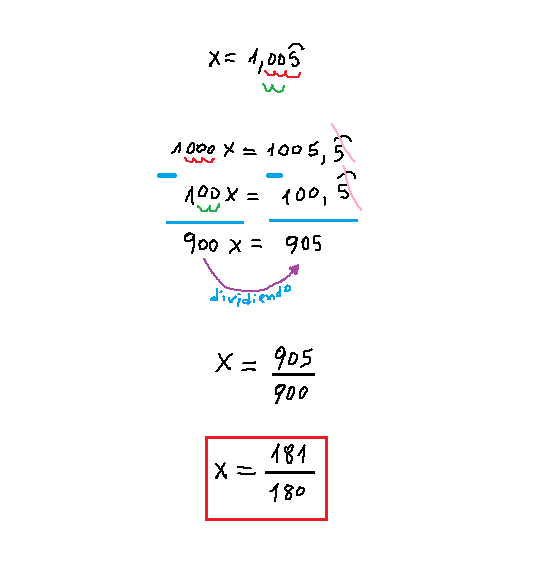 x = 1,005̂
1000 x = 1005,5̂
100 x = 100,5̂
900 x = 905
dividiendo
x = 905/900
x = 181/180